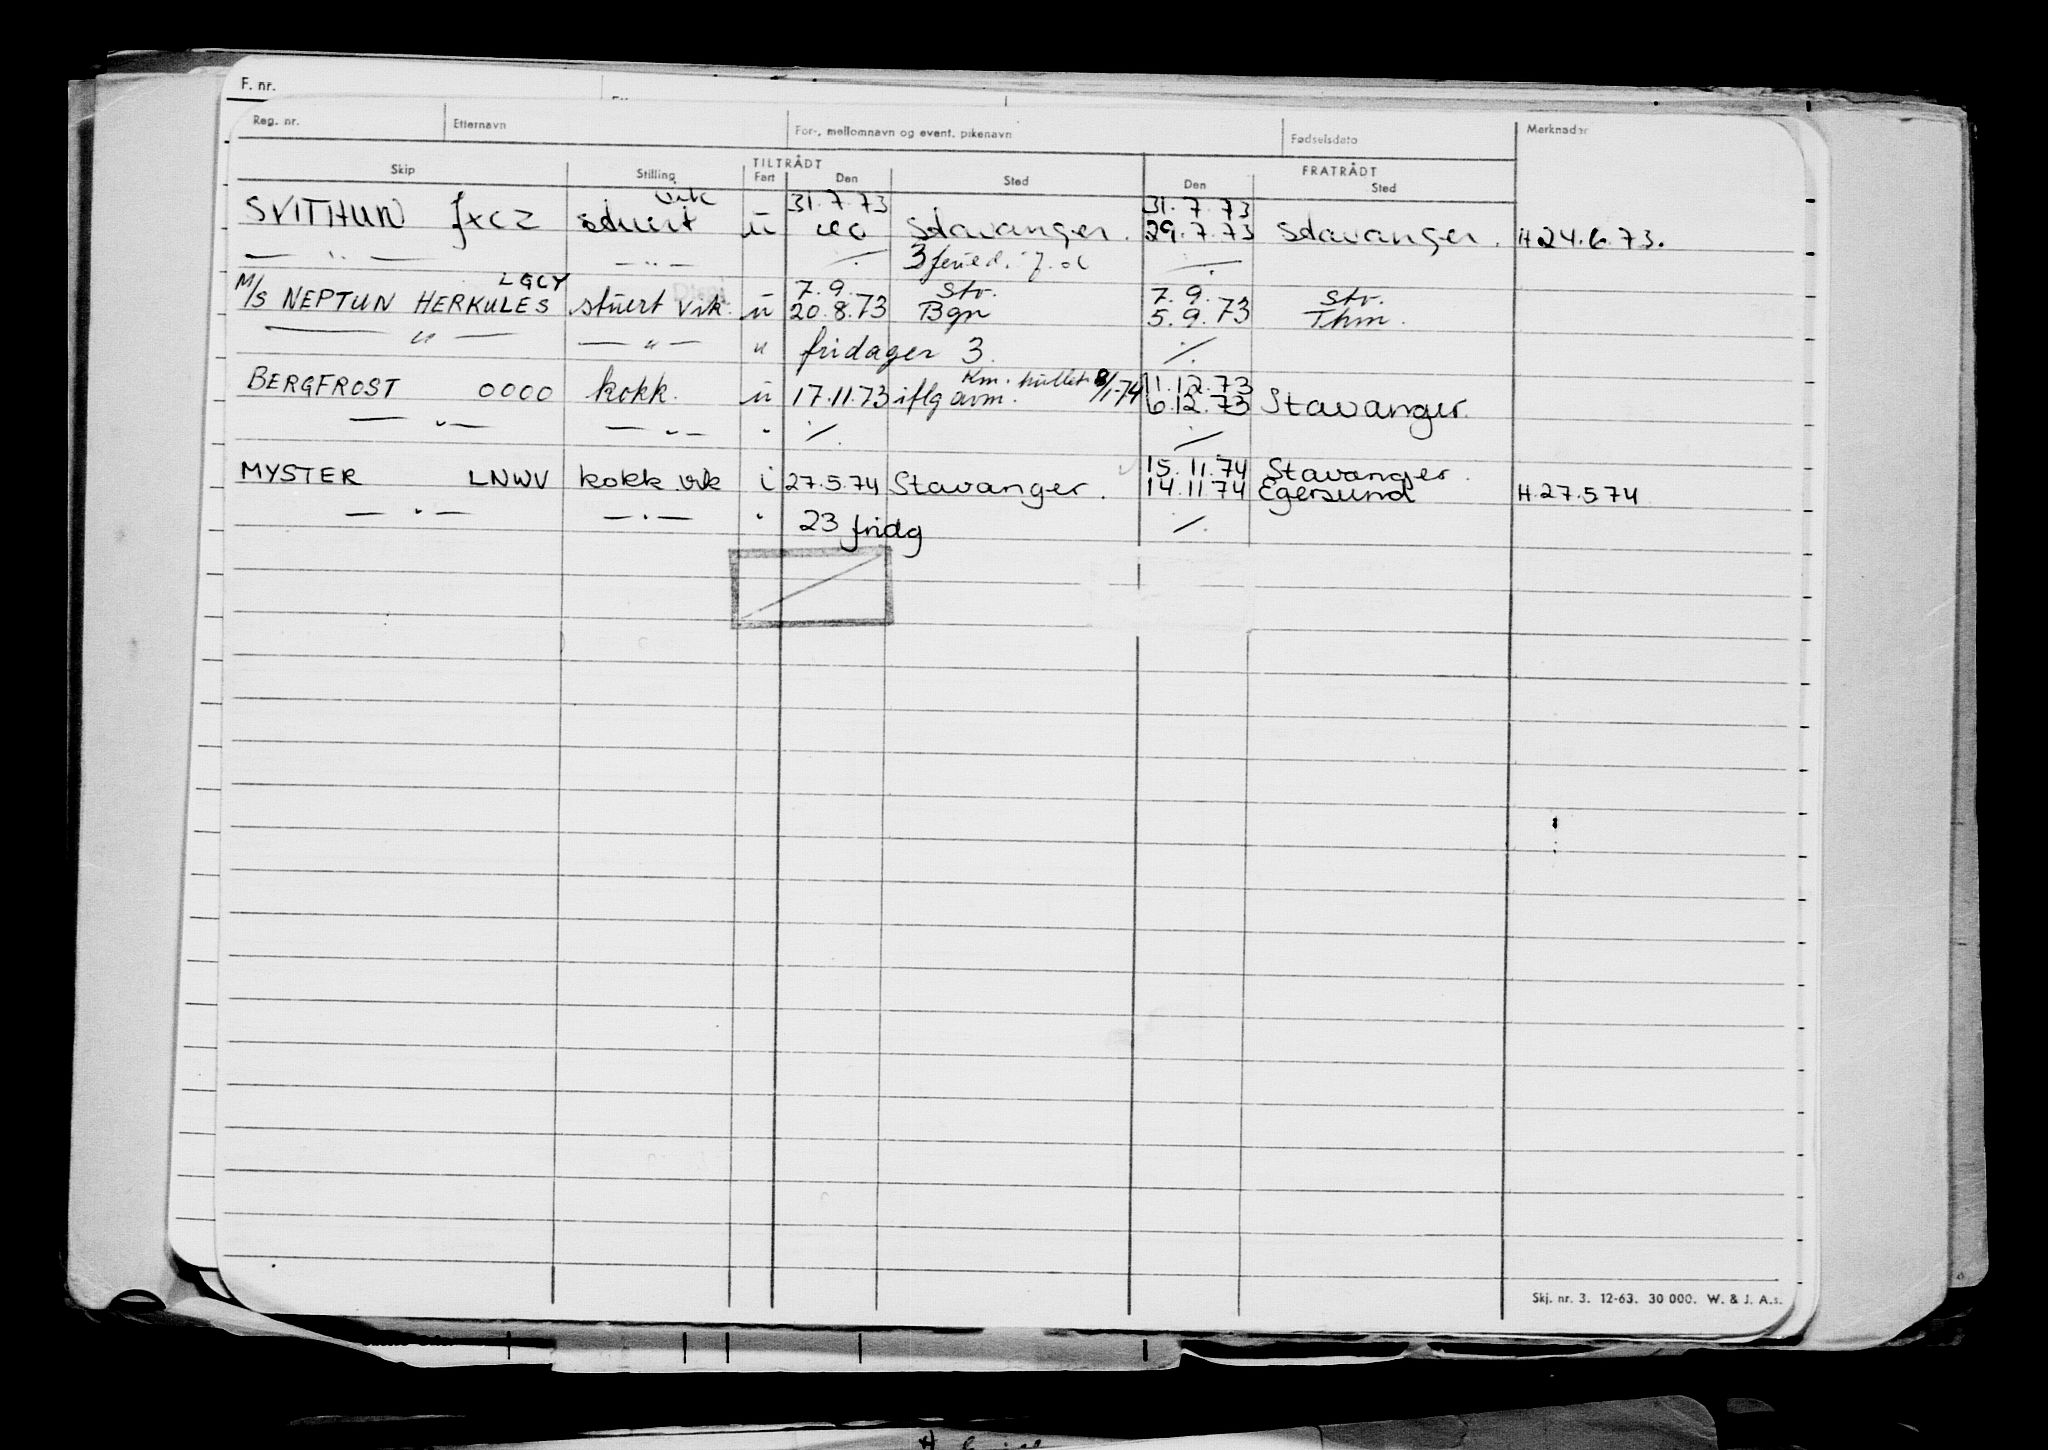 F. nr.
Reg. nr. Etternavn For-, mellomnavn og event. pikenavn Fødselsdato Merknader
TILTRÅDT FRATRÅDT
Skip Stilling Fart Den Sted Den Sted
vik 31.7.73 31.7.73
SVITHUN JXCZ stuert ü Stavanger. 29.7.73 Stavanger. H 24.6.73.
— " — — " — ⁒ 3 ⁒
LGCY 7.9. Stv. 7.9. Stv.
M/S NEPTUN HERKULES stuert vik. ü 20.8.73 Bgn 5.9.73 Thm.
— " — — " — " fridager 3. ⁒
Km. hullet 8/1-74 11.12.73
BERGFROST OOOO kokk. ü 17.11.73 iflg avm. 6.12.73 Stavanger.
— " — — " — " ⁒ ⁒
15.11.74 Stavanger.
MYSTER LNWV kokk vik i 27.5.74 Stavanger. 14.11.74 Egersund H.27.5.74
— " — — " — " 23 fridg ⁒
Skj. nr. 3. 12-63. 30 000. W. & J. A.s.